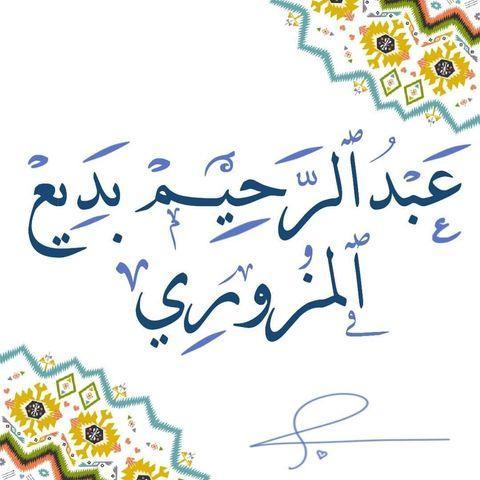 عَبْدُ ٱلرَّحِيْمْ بَدِيعْ
ٱلمُزوُرِي